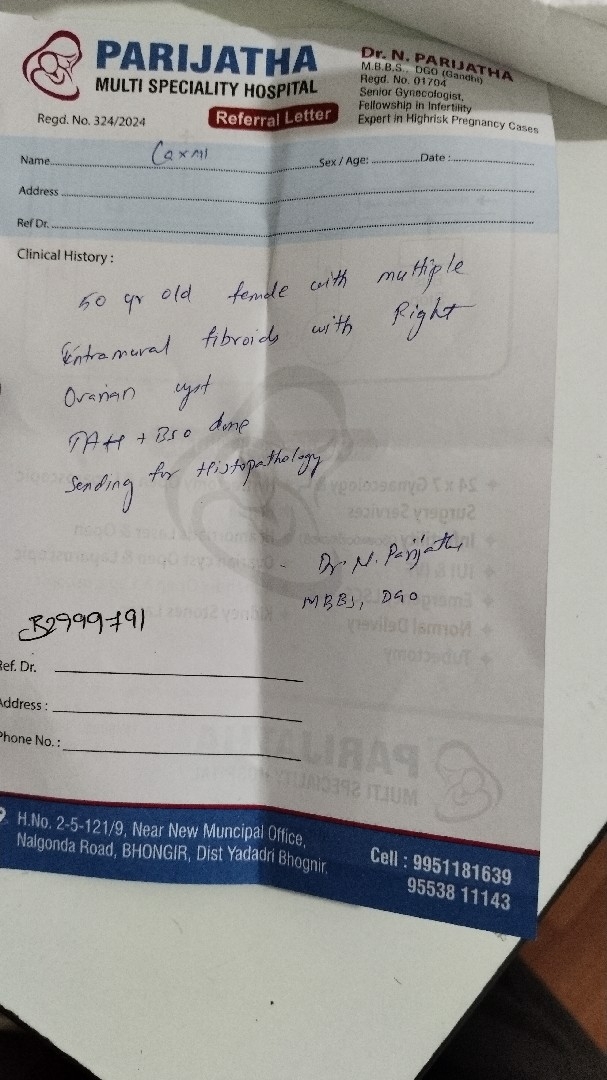 PARIJATHA
MULTI SPECIALITY HOSPITAL
Regd. No. 324/2024
Referral Letter
Dr. N. PARIJATHA
M.B.B.S., DGO (Gandhi)
Regd. No. 01704
Senior Gynecologist,
Fellowship in Infertility
Expert in Highrisk Pregnancy Cases
Name Laxmi Sex / Age: Date :
Address
Ref Dr.
Clinical History :
50 yr old female with multiple
intramural fibroids with Right
Ovarian cyst
TAH + BSO done
Sending for Histopathology
- Dr. N. Parijatha
MBBS, DGO
B2999791
Ref. Dr.
Address :
Phone No. :
H.No. 2-5-121/9, Near New Muncipal Office,
Nalgonda Road, BHONGIR, Dist Yadadri Bhognir,
Cell : 9951181639
95538 11143